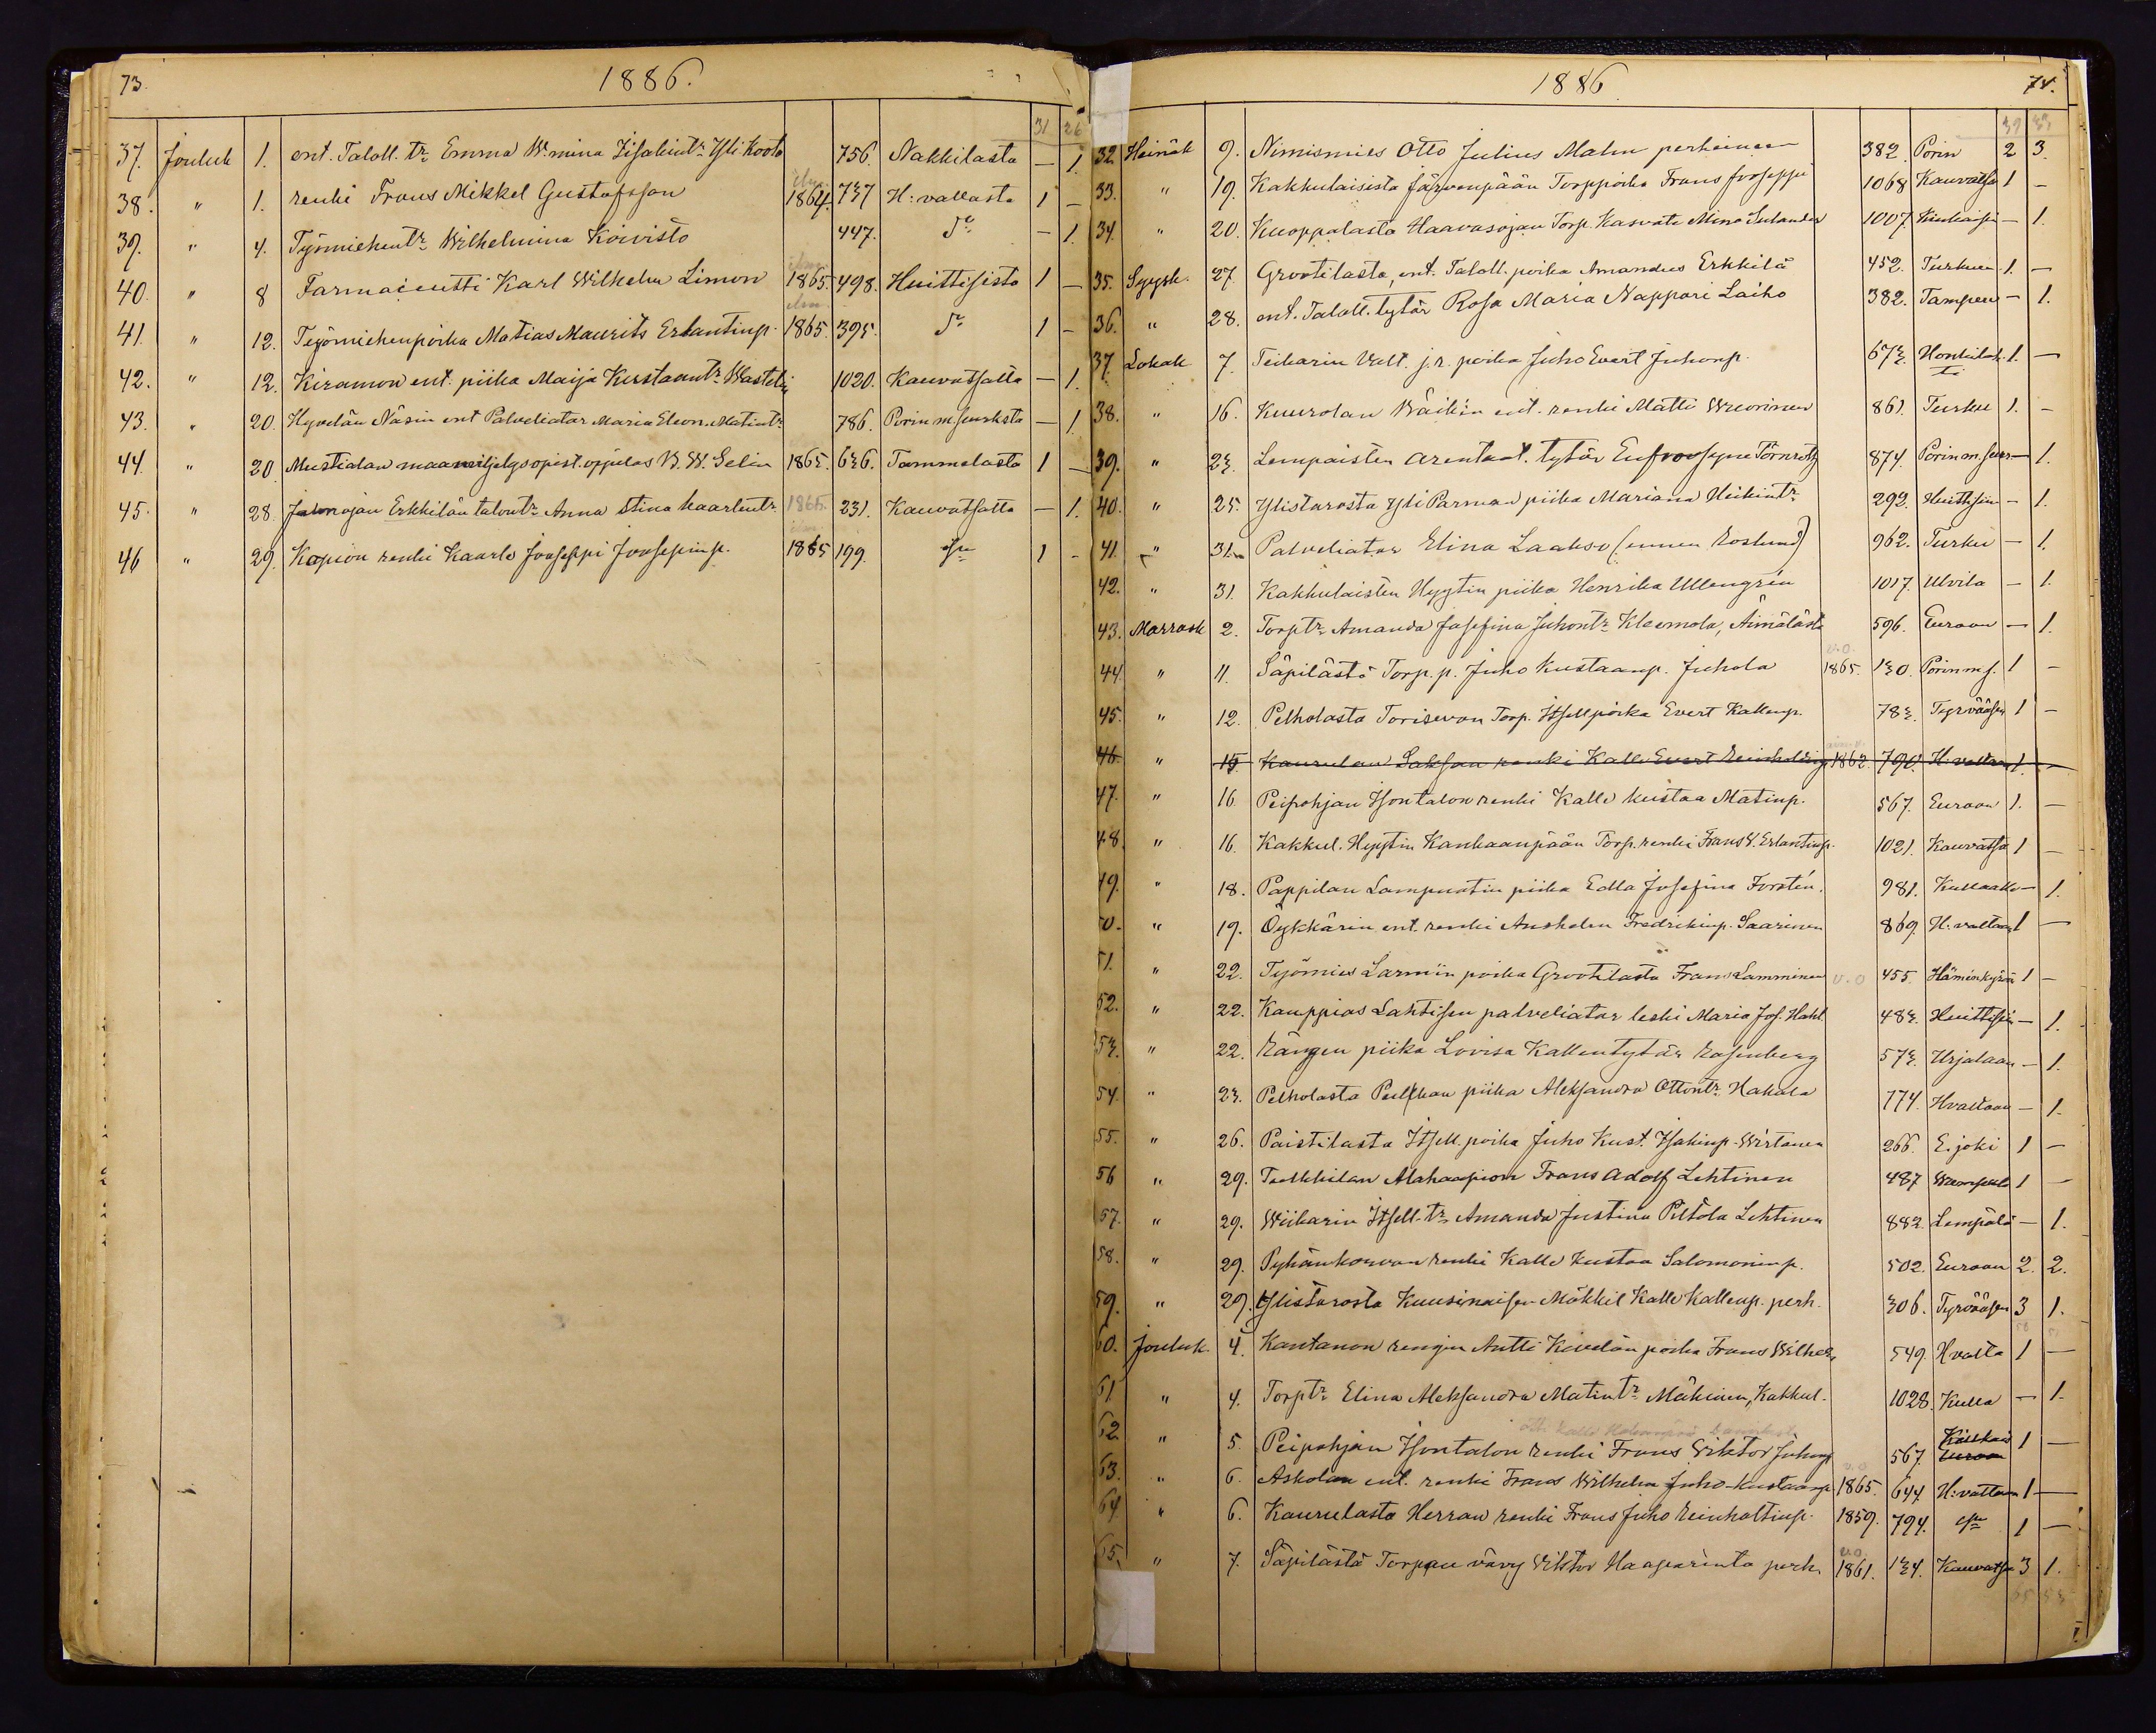 73.
1886.
31 26
37. Jouluk 1. ent. Taloll. tr Emma W:mina Iisakintr Yli Koota 756. Nakkilasta — 1.
38. " 1. renki Frans Mikkel Gustafsson 1864. 737 H: vallasta 1 —
39. " 4. Työmiehentr Wilhelmina Koivisto 447. — 1.
40. " 8 Farmaseutti Karl Wilhelm Limon 1865. 498. Huittisista 1 —
41. " 12. Työmiehenpoika Matias Maurits Erlantinp. 1865. 395. 1 —
42. " 12. Kiramon ent. piika Maija Kustaantr 1020. Kauvatsalta — 1.
43. " 20. Hyvelän Näsin ent Palveliatar Maria Eleon. Matintr 786. Porin m.seurksta — 1.
44. " 20 Mustialan maanviljelysopist. oppilas B. W. Selin 1865. 636. Tammelasta 1 —
45. " 28. Erkkilän talontr Anna Stina Kaarlentr 1865. 231. Kauvatsalta — 1.
46 " 29. Kopion renki Kaarlo Jooseppi Joosepinp. 1865 199. 1 —
1886
74.
39 33
32. Heinäk 9. Nimismies Otto Julius Malm perheineen 382. Porin 2 3.
33. " 19. Kakkulaisista Järvenpään Torppoika Frans Jooseppi 1068 Kauvatsa 1 —
34. " 20. Kuoppalasta Haavasojan Torp. Kasvati Mina Sulander 1007. — 1.
35. Syysk. 27. Grootilasta, ent. Taloll. poika Amandus Erkkilä 452. Turkuu 1. —
36. " 28. ent. Taloll. tytär Rosa Maria Nappari Laiho 382. Tampere — 1.
37. Lokak 7. Teikarin Valt. j.r. poika Juho Evert Juhonp. 673. 1. —
38. " 16. Kuurolan ent. renki Matti Wuorinen 861. Turku 1. —
39. " 23. Lempaisten arentaat. tytär Eufrosyne Törnroth 874. Porin m. seur — 1.
40. " 25. Ylistarosta Yli Parman piika Mariana Heikintr 292. Huittisiin — 1.
41. " 31. Palveliatar Elina Laakso (ennen Roslund) 962. Turku — 1.
42. " 31. Kakkulaisten Hyytin piika Henrika Ullengrén 1017. Ulvila — 1.
43. Marrask 2. Torptr Amanda Josefina Juhontr Kleemola, Äimälästä 596. Euraan — 1.
44. " 11. Säpilästä Torp. p. Juho Kustaanp. Juhola v.o. 1865. 130. Porin m.s. 1 —
45. " 12. Pelholasta Torisevan Torp. Itsell poika Evert Kallenp. 783. Tyrvääsen 1 —
46. " 15 Kaurulan Saksan renki Kalle Evert Reinholdinp 1862. 790. H: vallaan 1. —
47. " 16. Peipohjan Isontalon renki Kalle Kustaa Matinp. 567. Euraan 1. —
48. " 16. Kakkul. Hyytin Kankaanpään Torp. renki Frans V. Erlantinp. 1021. Kauvatsa 1 —
49. " 18. Pappilan Lampuotin piika Edla Josefina Forstén. 981. Kullaalle — 1.
50. " 19. Öykkärin ent. renki Anshelm Fredrikinp. Saarinen 869. H: vallaan 1 —
51. " 22. Työmies Larmiin poika Grootilasta Frans Lamminen v.o 455. Hämeenkyrön 1 —
52. " 22. Kauppias Lahtisen palveliatar leski Maria Jos. Hahl. 483. Huittisiin — 1.
53. " 22. Rängen piika Lovisa Kallentytär Rosenberg 573. Urjalaan — 1.
54. " 23. Pelholasta piika Aleksandra Ottontr Hakala 774. H vallaan — 1.
55. " 26. Paistilasta Itsell. poika Juho Kust. Isakinp. Wirtanen 266. E. joki 1 —
56 " 29. Tulkkilan Alahaapion Frans Adolf Lehtinen 487 Wampula 1 —
57. " 29. Wiikarin Itsell. tr Amanda Justina Peltola Lehtinen 882. Lempälä — 1.
58. " 29. Pyhänkorvan renki Kalle Kustaa Salomoninp. 502. Euraan 2. 2.
59. " 29. Ylistarosta Kuusinaisen Mökkil Kalle Kallenp. perh. 306. Tyrvääsen 3 1.
60. Jouluk. 4. Kantanon rengin Antti Kivelän poika Frans Wilhelm 549. H valta 1 —
61 " 4. Torptr Elina Aleksandra Matintr Mäkinen, Kakkul. 1028. Kulla — 1.
62. " 5. Peipohjan Isontalon renki Frans Viktor Juhonp 567. Euraan 1 —
63. " 6. Askolan ent. renki Frans Wilhelm Juho-Kustaanp. v.o 1865. 644 H: vallaan 1 —
64. " 6. Kaurulasta Herran renki Frans Juho Reinholtinp. 1859. 794. 1 —
65. " 7. Säpilästä Torpan vävy Viktor Haaparinta perh. v.o. 1861. 134. Kauvatsa 3 1.
65 53